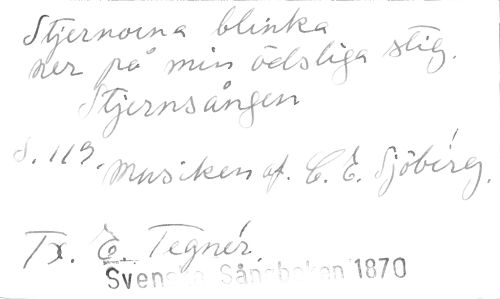 Stjernorna blinka
ner på min ödsliga stig.
Stjernsången
S. 119.
Musiken af. C. E. Sjöberg.
Tx. E. Tegnér.
Svenska Sångboken 1870